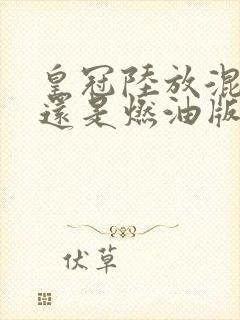 皇冠陸放混
還是燃油版
伏草